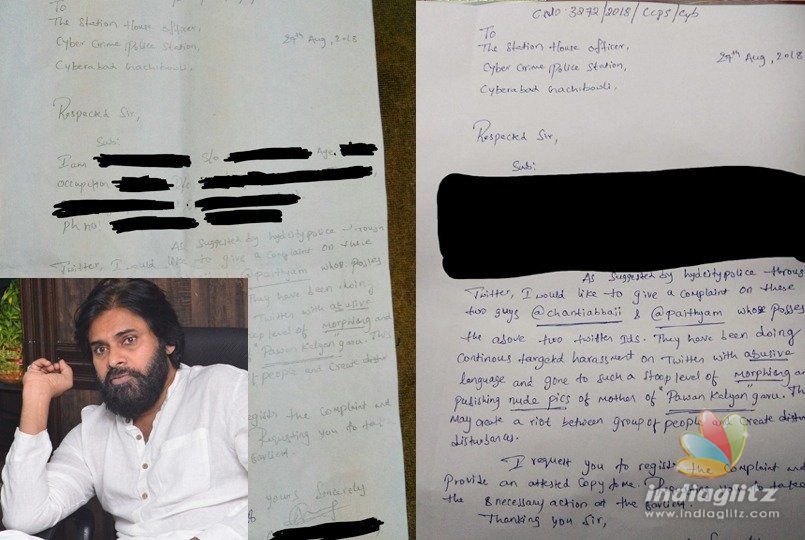 To
The Station House officer,
Cyber Crime Police Station,
Cyberabad Gachibowli
29th Aug, 2018
Respected Sir,
Sub:
I am S/o Age,
occupation
Ph no:
As suggested by hydcitypolice through
Twitter, I would like to give a complaint on these
@paithyam whose posses
They have been doing
Twitter with abusive
level of morphieng and
"Pawan Kalyan" garu. This
of people and create
the complaint and
Requesting you to
Earliest.
Yours Sincerely
C No: 3272/2018/CCPS/Cyb
To
The Station House officer,
Cyber Crime Police Station,
Cyberabad Gachibowli
29th Aug, 2018
Respected Sir,
Sub:
As suggested by hydcitypolice through
Twitter, I would like to give a complaint on these
two guys @chantiabbaii & @paithyam whose posses
the above two twitter IDs. They have been doing
Continous targatd harassment on Twitter with abusive
language and gone to such a stoop level of morphieng and
publishing nude pics of mother of "Pawan Kalyan" garu. This
may create a riot between group of people and create
disturbances.
I request you to register the complaint and
Provide an attested Copy to me. to take
the & necessary action at the Earliest.
Thanking you Sir,
indiaglitz
www.indiaglitz.com